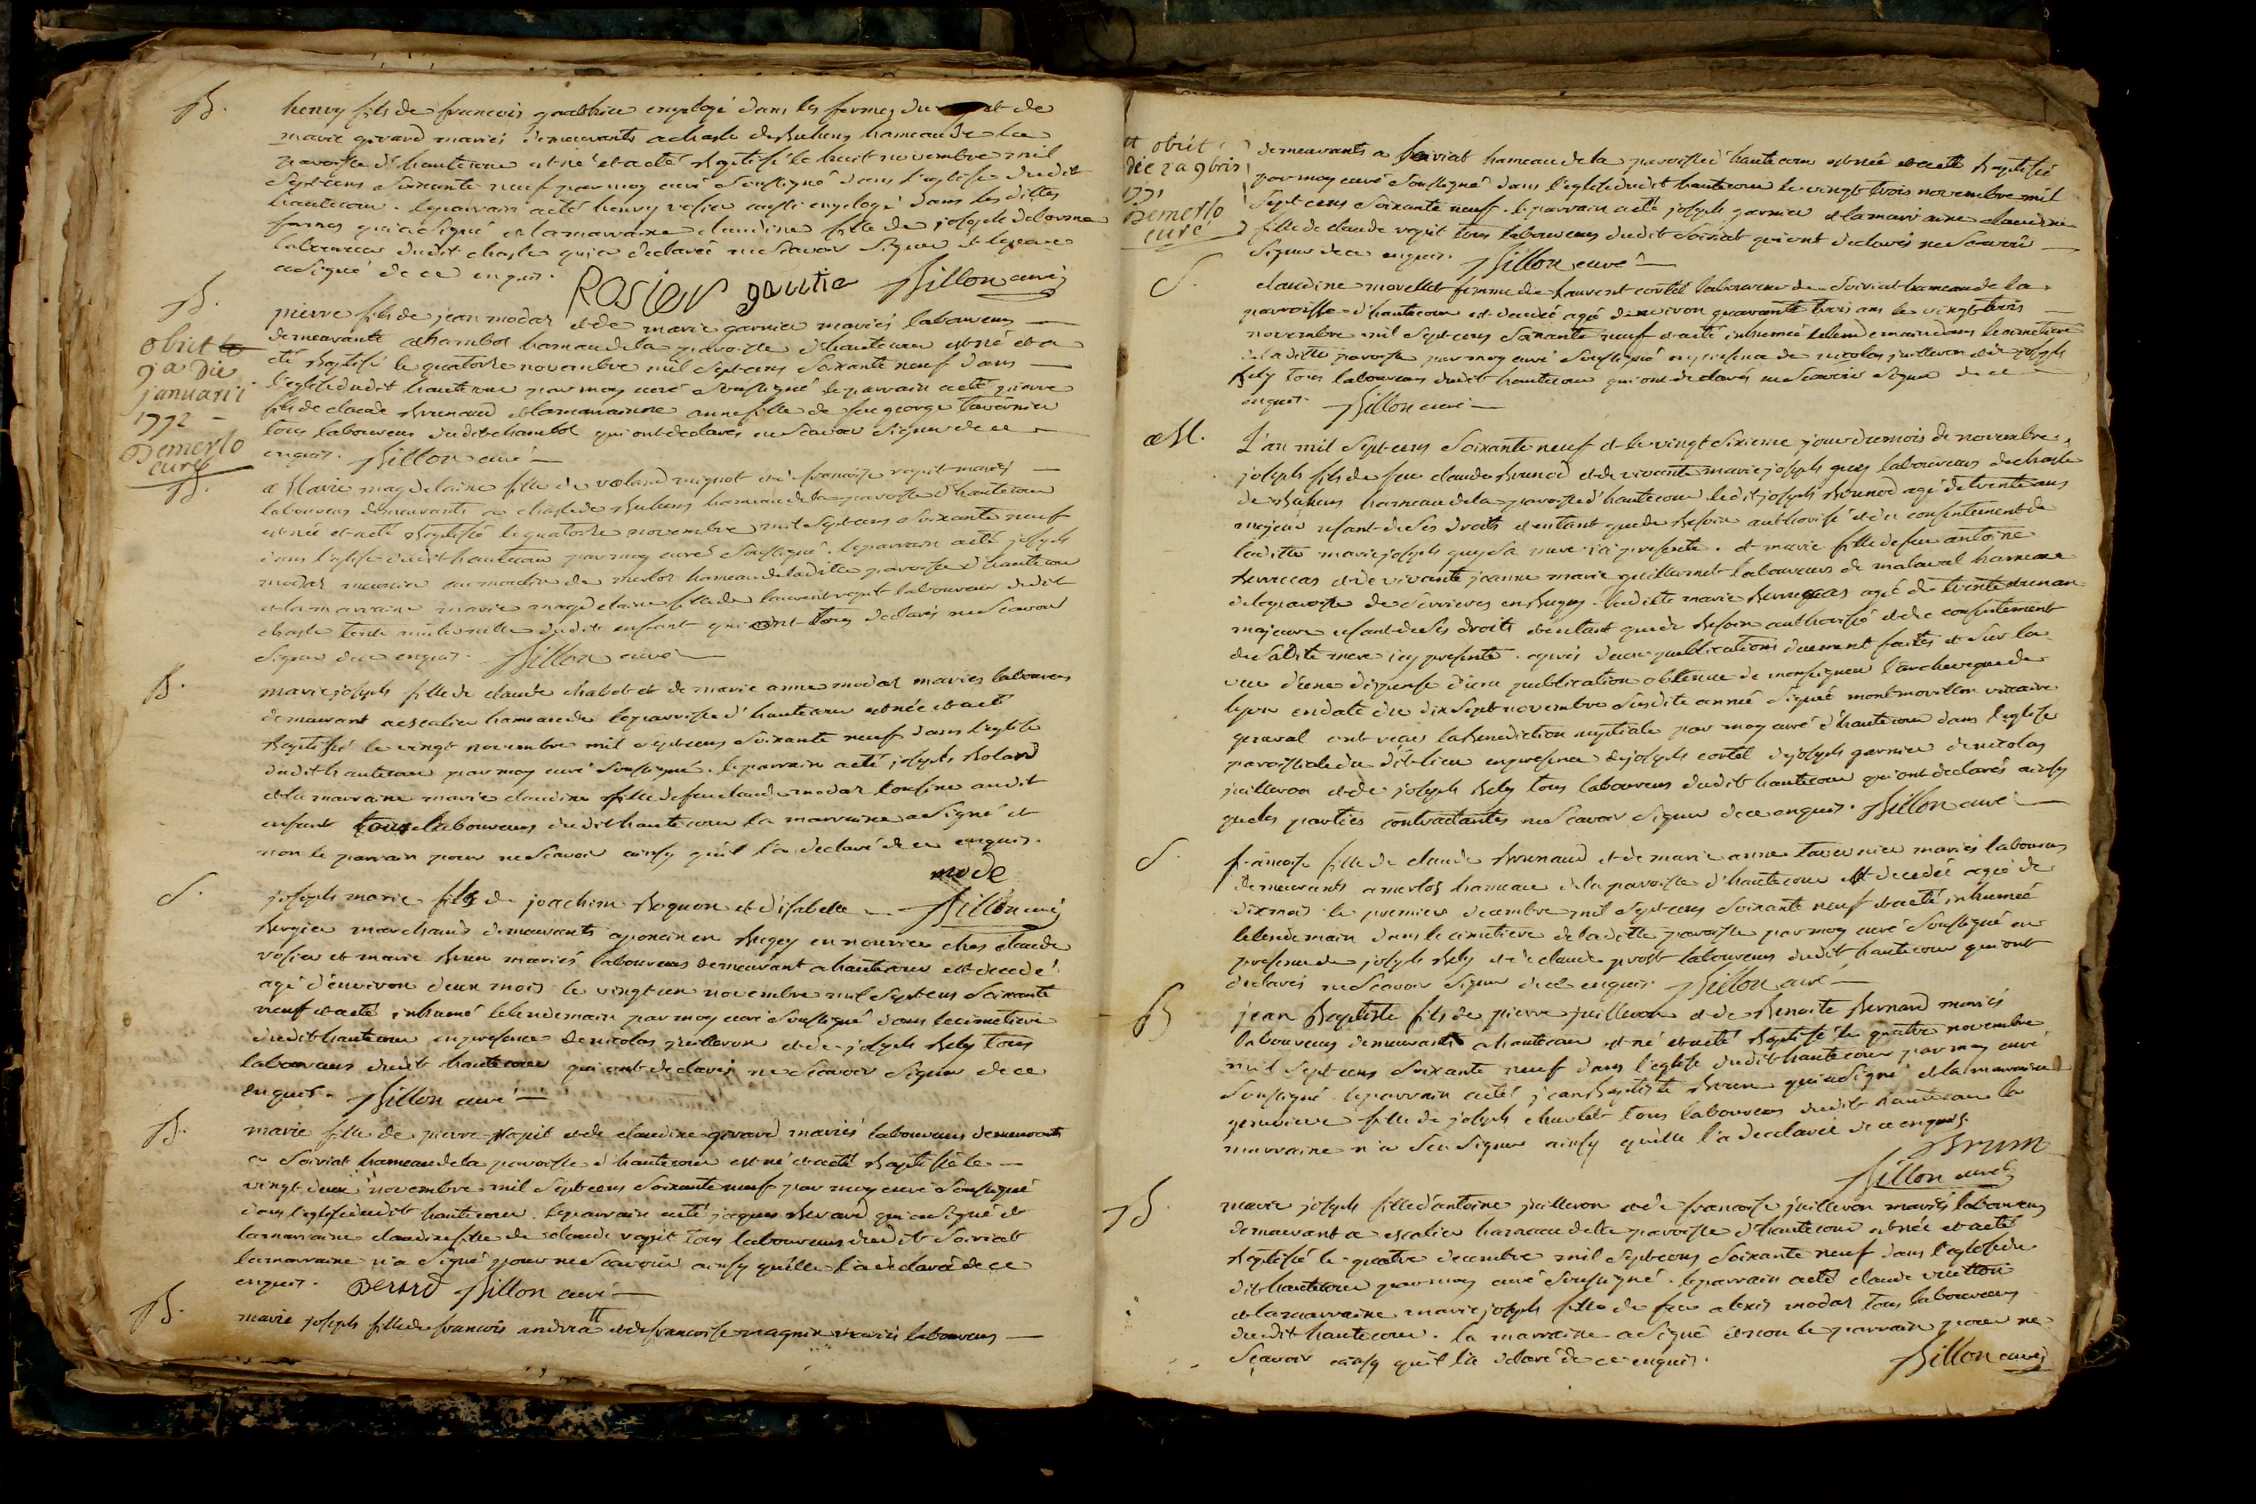 B.
henry fils de francois gauthier employé dans les fermes du et de
marie girard mariés demeurants a chasle de hameau de la
paroisse d'hautecour est né et a eté Baptisé le huit novembre mil
sept cens soixante neuf par moy curé soussigné dans l'eglise dudit
hautecour. le parrain a eté henry rosier aussi employé dans les dittes
fermes qui a signé et la marraine claudine fille de joseph delorme
laboureur dudit chasle qui a declaré ne scavoir signer et le pere
a signé de ce enquis. Rosier gautie Billon curé
B.
obiit
9a die
januarii
1772
Demerlo
curé
pierre fils de jean modas et de marie garnier mariés laboureurs
demeurants a chambol hameau de la paroisse d'hautecour est né et a
eté Baptisé le quatorse novembre mil sept cens soixante neuf dans
l'eglise dudit hautecour par moy curé soussigné le parrain a eté pierre
fils de claude Brunaud et la marrainne anne fille de feu george tavernier
tous laboureurs dudit chambol qui ont declarés ne scavoir signer de ce
enquis. Billon curé
B.
Marie magdelaine fille de roland mignot et de francoise vopit mariés
laboureurs demeurants a chasle de hameau de la paroisse d'hautecour
est née et a eté Baptisée le quatorse novembre mil sept cens soixante neuf
dans l'eglise dudit hautecour par moy curé soussigné. le parrain a eté joseph
modas meunier au moulin de merlos hameau de la ditte paroisse d'hautecour
et la marraine marie magdelaine fille de laurent vopit laboureur dudit
chasle tante maternelle dudit enfant qui ont tous declarés ne scavoir
signer de ce enquis. Billon curé
B.
marie joseph fille de claude chabot et de marie anne modas mariés laboureurs
demeurant a escalier hameau de la paroisse d'hautecour est née et a eté
Baptisée le vingt novembre mil sept cens soixante neuf dans l'eglise
dudit hautecour par moy curé soussigné. le parrain a eté joseph Roland
et la marraine marie claudine fille de feu claude modas cousine audit
enfant tous laboureurs dudit hautecour la marraine a signé et
non le parrain pour ne scavoir ainsy qu'il l'a declaré de ce enquis.
mode
S.
joseph marie fils de joachim Boquon et d'isabelle Billon curé
Bergier marchand demeurants a poncin en Bugey en nourrice chez claude
rosier et marie Brun mariés laboureurs demeurant a hautecour est decedé
agé d'environ deux mois le vingt un novembre mil sept cens soixante
neuf et a eté inhumé le lendemain par moy curé soussigné dans le cimetiere
dudit hautecour en presence de nicolas juilleron et de joseph Bely tous
laboureurs dudit hautecour qui ont declarés ne scavoir signer de ce
enquis. Billon curé
B.
marie fille de pierre vopit et de claudine girard mariés laboureurs demeurants
a soiriat hameau de la paroisse d'hautecour est né et a eté Baptisée le
vingt deux novembre mil sept cens soixante neuf par moy curé soussigné
dans l'eglise dudit hautecour. le parrain a eté jaques Berard qui a signé et
la marraine claudine fille de claude vopit tous laboureurs dudit soiriat
la marraine n'a signé pour ne scavoir ainsy qu'elle l'a declaré de ce
enquis. Berard Billon curé
B.
marie joseph fille de francois andréa et de francoise magnin mariés laboureurs
obiit
die 2a 9bris
1771
Demerlo
curé
demeurants a soiriat hameau de la paroisse d'hautecour est née et a eté Baptisée
par moy curé soussigné dans l'eglise dudit hautecour le vingt trois novembre mil
sept cens soixante neuf. le parrain a eté joseph garnier et la marraine claudine
fille de claude vopit tous laboureurs dudit soiriat qui ont declarés ne scavoir
signer de ce enquis. Billon curé
S.
claudine morellet femme de laurent cortel laboureur de soiriat hameau de la
paroisse d'hautecour est decedé agé d'environ quarante trois ans le vingt trois
novembre mil sept cens soixante neuf et a eté inhumée le lendemain dans le cimetiere
de la ditte paroisse par moy curé soussigné en presence de nicolas juilleron et de joseph
Bely tous laboureurs dudit hautecour qui ont declarés ne scavoir signer de ce
enquis. Billon curé
M.
L'an mil sept cens soixante neuf et le vingt sixieme jour du mois de novembre
joseph fils de feu claude Brunod et de vivante marie joseph guy laboureurs de chasle
de hameau de la paroisse d'hautecour ledit joseph Brunod agé de trente ans
majeur usant de ses droits et entant que de besoin authorisé et du consentement de
laditte marie joseph guy sa mere ici presente. et marie fille de feu antoine
et de vivante jeanne marie guillermet laboureurs de malaval hameau
de la paroisse de serrieres en Bugey. laditte marie agé de trente un an
majeure usant de ses droits et entant que de besoin authorisée et de consentement
de sa dite mere icy presente. après deux publications duement faites et sur la
vue d'une dispense d'une publication obtenue de monseigneur l'archeveque de
lyon en date du dix sept novembre susdite année signée montmorillon vicaire
general ont reçu la benediction nuptiale par moy curé d'hautecour dans l'eglise
paroissiale du dit lieu en presence de joseph cortel de joseph garnier de nicolas
juilleron et de joseph Bely tous laboureurs dudit hautecour qui ont declarés ainsy
que les parties contractantes ne scavoir signer de ce enquis. Billon curé
S.
francoise fille de claude Brunaud et de marie anne tavernier mariés laboureurs
demeurants a merlos hameau de la paroisse d'hautecour est decedée agée de
dix mois le premier decembre mil sept cens soixante neuf et a eté inhumée
le lendemain dans le cimetiere de laditte paroisse par moy curé soussigné en
presence de joseph Bely et de claude prost laboureurs dudit hautecour qui ont
declarés ne scavoir signer de ce enquis. Billon curé
B
jean Baptiste fils de pierre juilleron et de Benoite Bernard mariés
laboureurs demeurants a hautecour est né et a eté Baptisé le quatre novembre
mil sept cens soixante neuf dans l'eglise dudit hautecour par moy curé
soussigné. le parrain a eté jean Baptiste Brun qui a signé et la marraine
genevieve fille de joseph charlet tous laboureurs dudit hautecour la
marraine n'a seu signer ainsy qu'elle l'a declarée de ce enquis.
Brun
Billon curé
B.
marie joseph fille d'antoine juilleron et de francoise juilleron mariés laboureurs
demeurant a escalier hameau de la paroisse d'hautecour est née et a eté
Baptisée le quatre decembre mil sept cens soixante neuf dans l'eglise du
dit hautecour par moy curé soussigné. le parrain a eté claude
et la marraine marie joseph fille de feu alexis modas tous laboureurs
dudit hautecour. la marraine a signé et non le parrain pour ne
scavoir ainsy qu'il l'a declaré de ce enquis. Billon curé